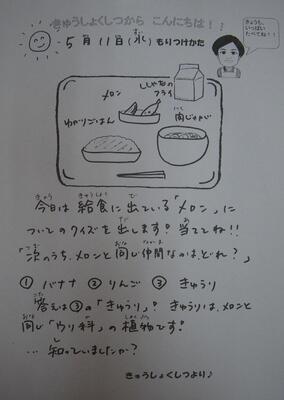 きゅうしょくしつから こんにちは!
きょうも、
いっぱい
たべてね!!
5月11日(水) もりつけかた
メロン
ししゃもの
フライ
にく
肉じゃが
ゆかりごはん
きょう きゅうしょく で
今日は 給食に 出ている「メロン」に
だ あ
ついてのクイズを 出します! 当ててね!!
つぎ おな なかま
「次のうち、メロンと 同じ仲間なのは、どれ?」
① バナナ ② りんご ③ きゅうり
こた
答えは③の「きゅうり」! きゅうりは、メロンと
おな か しょくぶつ
同じ「ウリ科」の 植物です!
し
… 知っていましたか?
きゅうしょくしつより♪